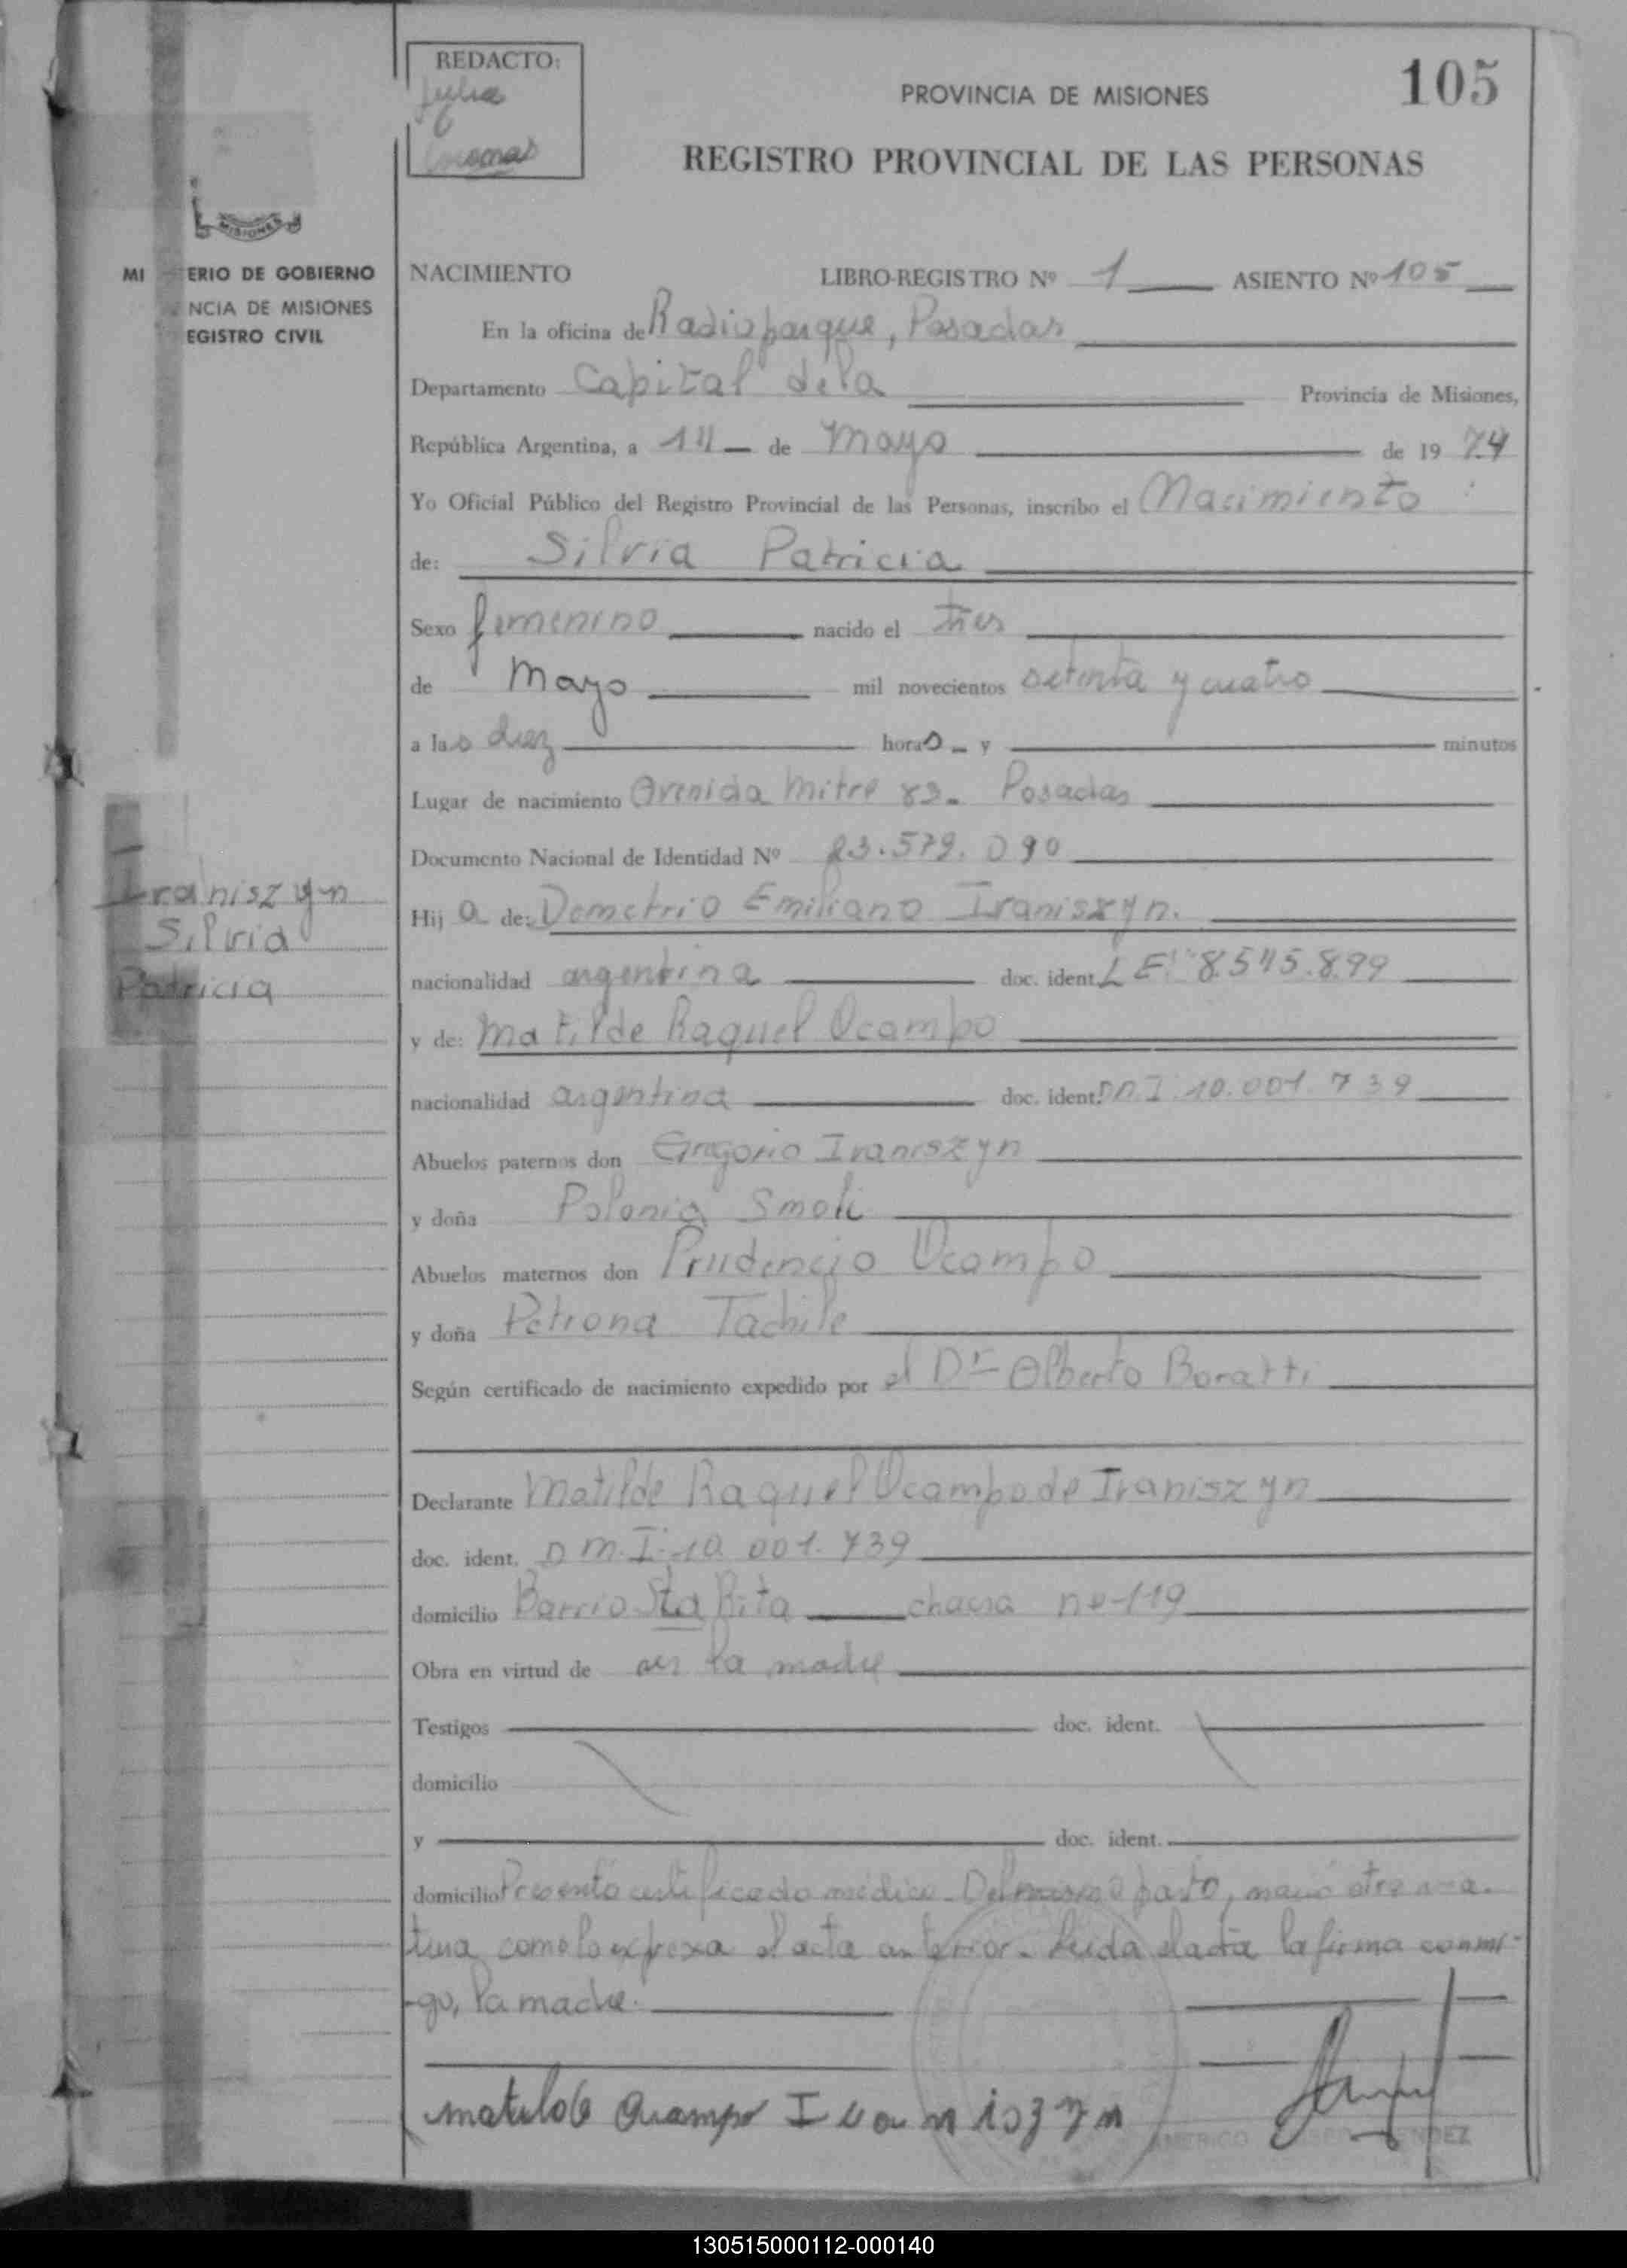 REDACTO:
Julia
PROVINCIA DE MISIONES
105
REGISTRO PROVINCIAL DE LAS PERSONAS
MISIONES
MI ERIO DE GOBIERNO
NCIA DE MISIONES
EGISTRO CIVIL
NACIMIENTO LIBRO-REGISTRO Nº 1 ASIENTO Nº 105
En la oficina de Radioparque, Posadas
Departamento Capital dela Provincia de Misiones,
República Argentina, a 14 de Mayo de 1974
Yo Oficial Público del Registro Provincial de las Personas, inscribo el Nacimiento
de: Silvia Patricia
Sexo femenino nacido el tres
de Mayo mil novecientos setenta y cuatro
a las diez horas y minutos
Lugar de nacimiento Avenida Mitre 83 - Posadas
Documento Nacional de Identidad Nº 23.579.090
Ivaniszyn
Silvia
Patricia
Hija de: Demetrio Emiliano Ivaniszyn.
nacionalidad argentina doc. ident. L E. 8.545.899
y de: Matilde Raquel Ocampo
nacionalidad argentina doc. ident. D.N.I. 10.001.739
Abuelos paternos don Gregorio Ivaniszyn
y doña Polonia Smoli
Abuelos maternos don Prudencio Ocampo
y doña Petrona Tachile
Según certificado de nacimiento expedido por el Dr Alberto Boratti
Declarante Matilde Raquel Ocampo de Ivaniszyn
doc. ident. D N.I. 10.001.739
domicilio Barrio Sta Rita chacra nº 119
Obra en virtud de ser la madre
Testigos doc. ident.
domicilio
y doc. ident.
domicilio Presentó certificado médico - Del mismo parto, nació otra
como lo expresa el acta anterior - Leida el acta la firma conmi-
-go, la madre.
Matilde Ocampo Ivaniszyn
AMERICO
130515000112-000140